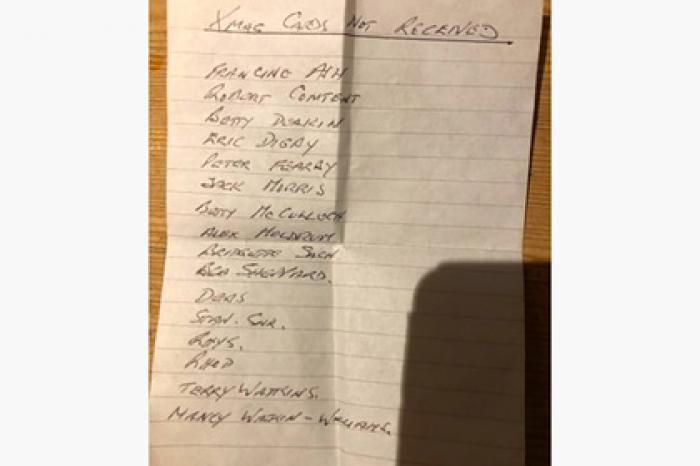 XMAS CARDS NOT RECEIVED
FRANCINE ASH
ROBERT CONTENT
BETTY DEAKIN
ERIC DIGBY
PETER FEARBY
JACK MORRIS
BETTY McCULLOCH
ALEX MELDRUM
BRIDGETTE SUCH
SHEPPARD.
DORIS
STAN. SNR.
RHYS.
RHOD
TERRY WATKINS.
NANCY WATKIN-WILLIAMS.